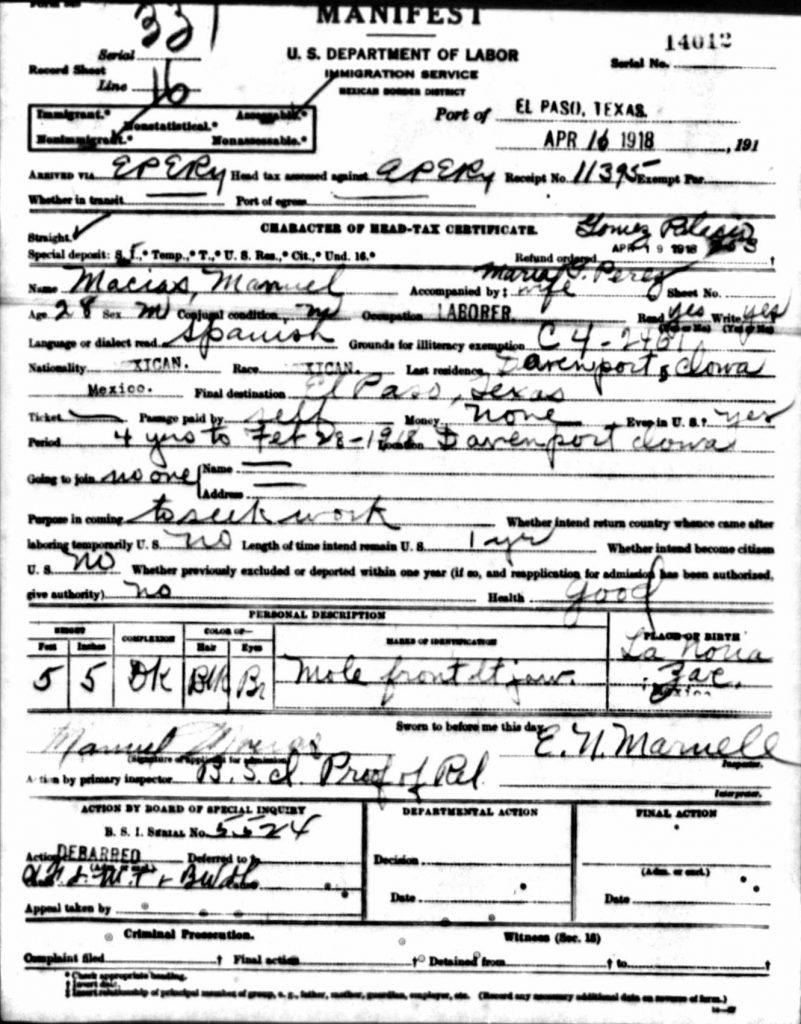 MANIFEST
U. S. DEPARTMENT OF LABOR
IMMIGRATION SERVICE
MEXICAN BORDER DISTRICT
Serial 331
Record Sheet
Line 16
14012
Serial No.
Immigrant.* Assessable.*
Nonstatistical.*
Nonimmigrant.* Nonassessable.*
Port of EL PASO, TEXAS.
APR 16 1918 , 191
ARRIVED VIA EPERy Head tax assessed against EPERy Receipt No. 11395 Exempt Par.
Whether in transit Port of egress
Straight. CHARACTER OF HEAD-TAX CERTIFICATE. Gomez Palacio
Special deposit: S. I.,* Temp.,* T.,* U. S. Res.,* Cit.,* Und. 16.* Refund ordered APR 19 1918 †
Name Macias, Manuel Accompanied by‡ Maria G. Perez wife Sheet No.
Age 28 Sex M Conjugal condition m Occupation LABORER. Read yes Write yes
(Yes or No) (Yes or No)
Language or dialect read Spanish Grounds for illiteracy exemption C 4-
Nationality XICAN. Race XICAN. Last residence Davenport, Iowa
Mexico. Final destination El Paso, Texas
Ticket Passage paid by self Money none Ever in U. S.? yes
Period 4 yrs to Feb 28-1918 Location Davenport Iowa
Going to join no one Name
Address
Purpose in coming to seek work Whether intend return country whence came after
laboring temporarily U. S. no Length of time intend remain U. S. 1 yr Whether intend become citizen
U. S. no Whether previously excluded or deported within one year (if so, and reapplication for admission has been authorized,
give authority) no Health good
PERSONAL DESCRIPTION
HEIGHT COMPLEXION COLOR OF— MARKS OF IDENTIFICATION PLACE OF BIRTH
Feet Inches Hair Eyes
5 5 DK Blk Br Mole front lt jaw. La Noria
Zac.
Mexico
Sworn to before me this day.
Manuel Macias E. N.
(Signature of applicant for admission) Inspector.
Action by primary inspector B. S. I. Proof of Rel
Interpreter.
ACTION BY BOARD OF SPECIAL INQUIRY DEPARTMENTAL ACTION FINAL ACTION
B. S. I. SERIAL No. 5524
Action DEBARRED Deferred to Decision
(Adm. or excl.)
Date Date
Appeal taken by
Criminal Prosecution. Witness (Sec. 18)
Complaint filed † Final action † Detained from † to †
* Check appropriate heading.
† Insert date.
‡ Insert relationship of principal member of group, e. g., father, mother, guardian, employer, etc. (Record any necessary additional data on reverse of form.)